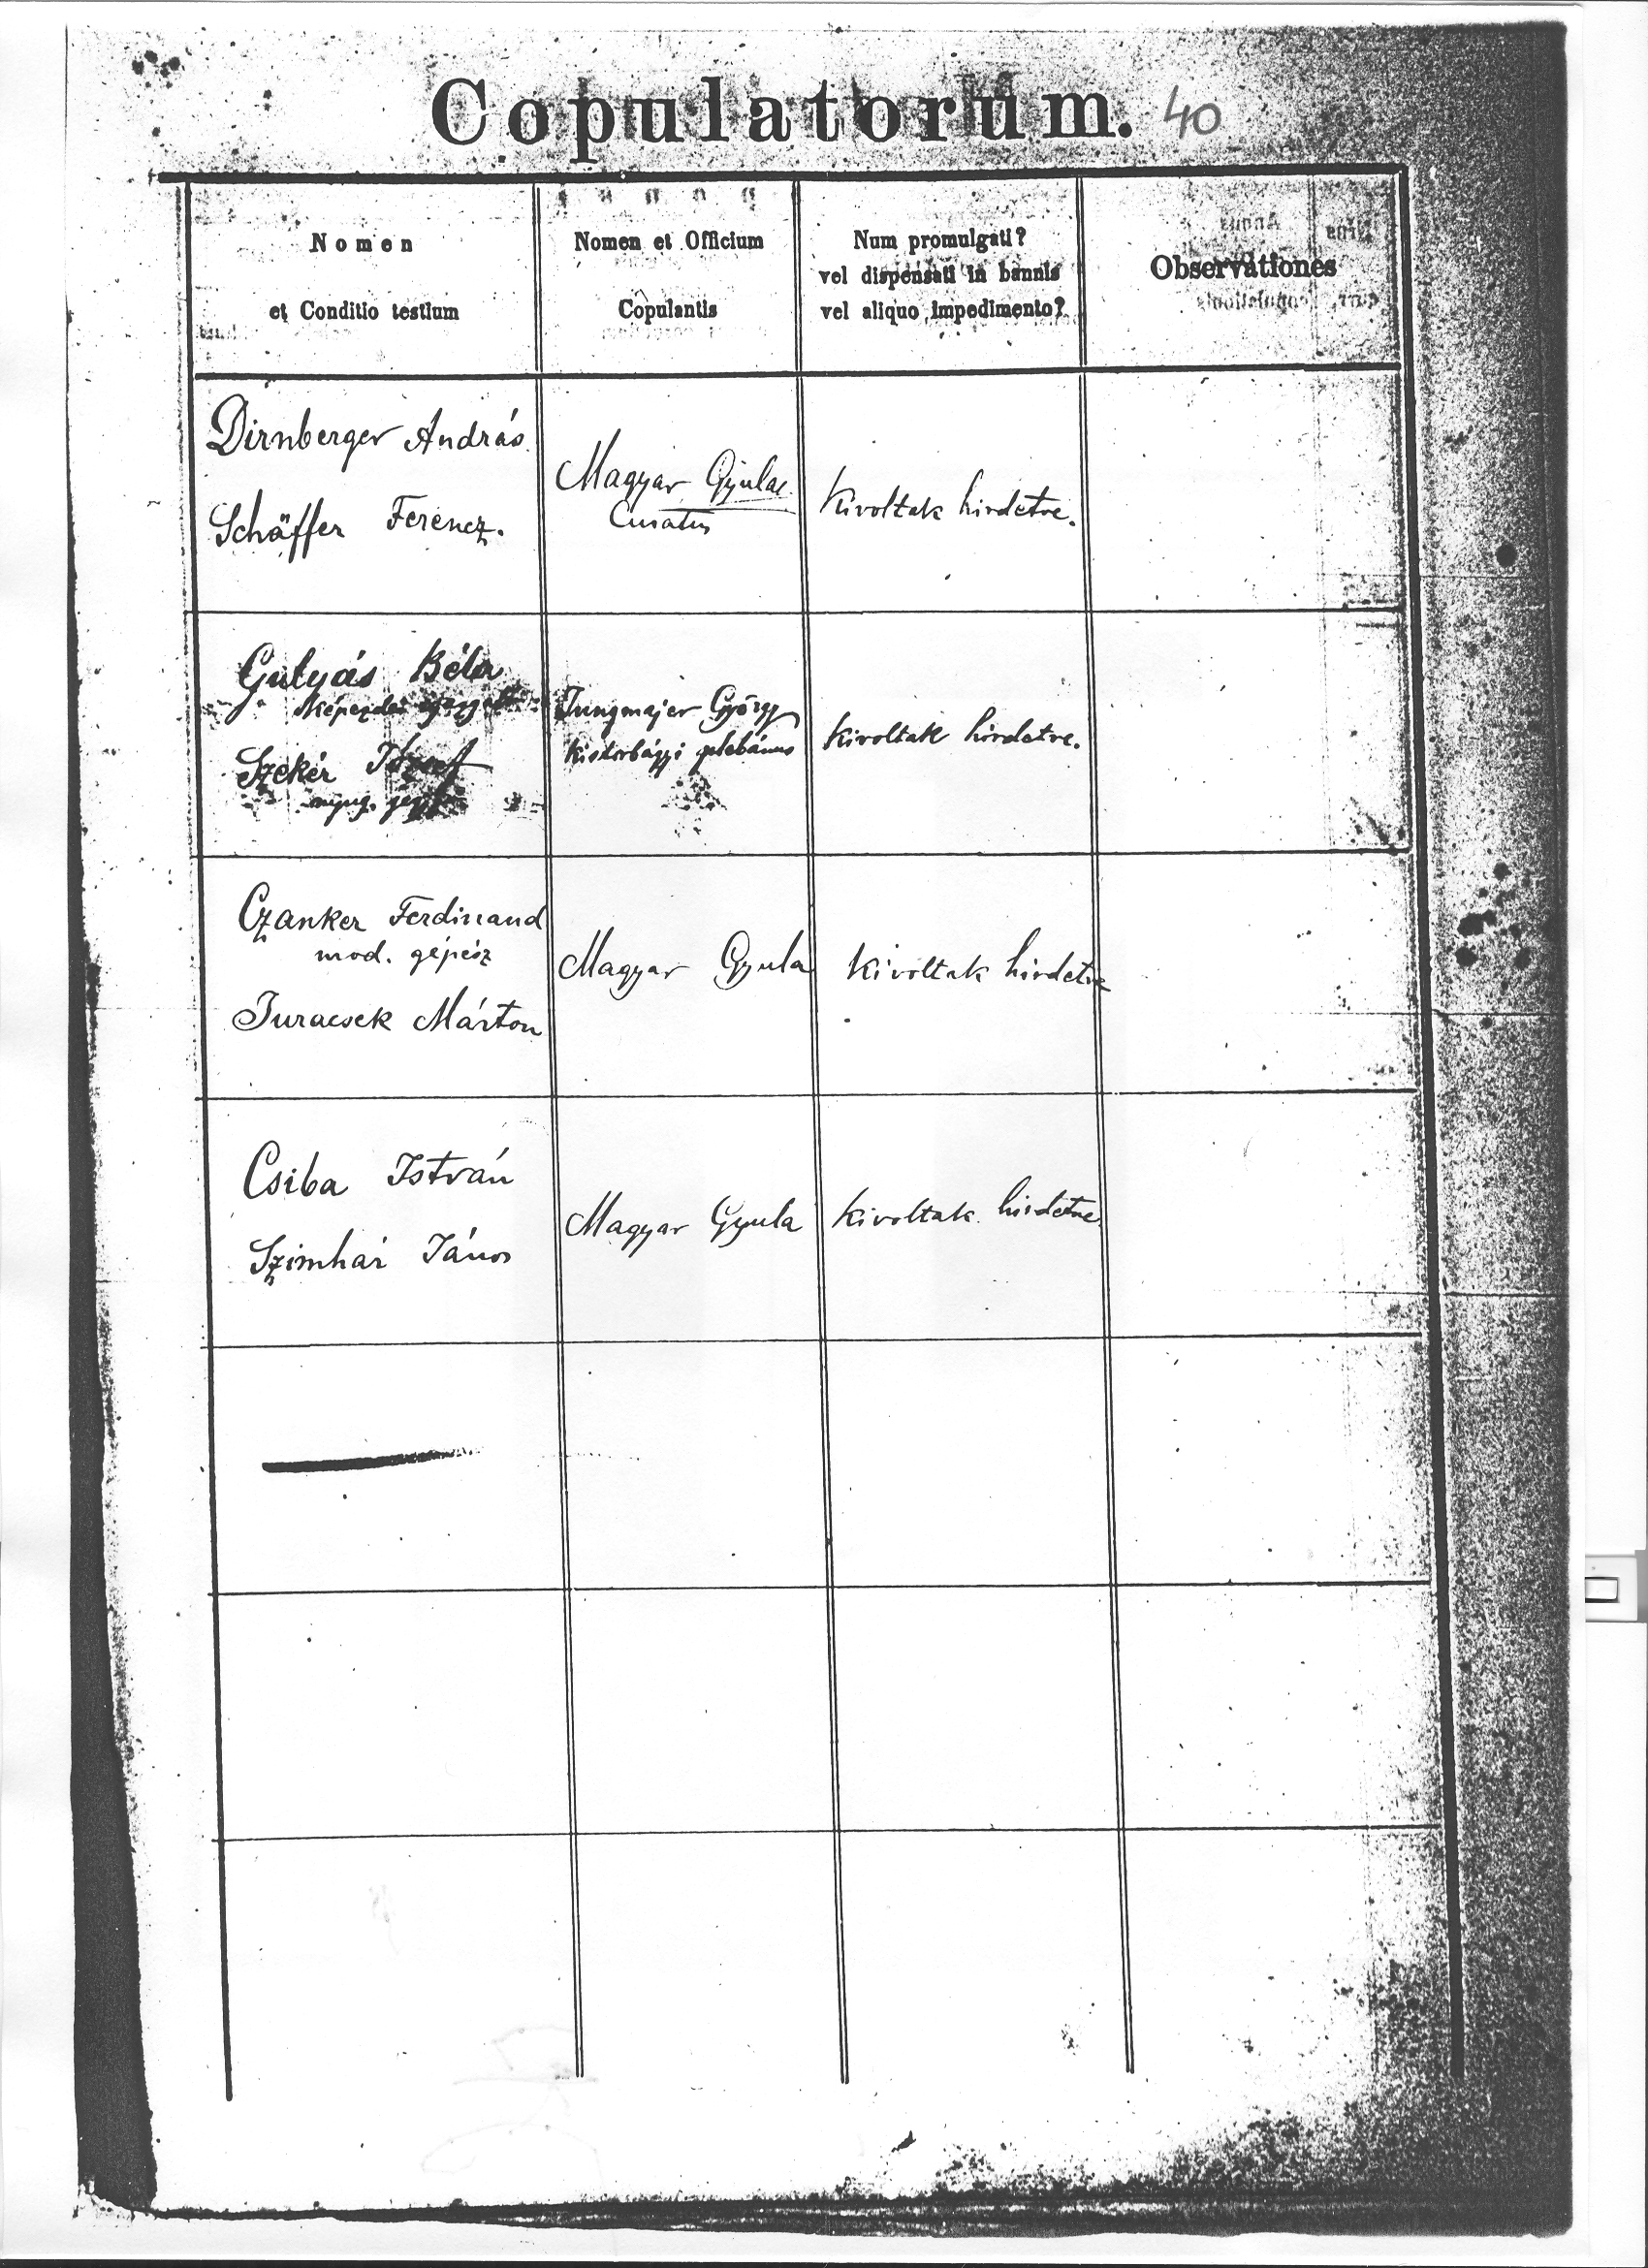 Copulatorum. 40
Nomen
et Conditio testium
Nomen et Officium
Copulantis
Num promulgati?
vel dispensati in bannis
vel aliquo impedimento?
Observationes
Dirnberger András
Schäffer Ferencz.
Magyar Gyula
Curatus
Kivoltak hirdetve.
Gulyás Béla
Szekér József
nyug.
Jungmajer György
kistorbágyi plebános
Kivoltak hirdetve.
Czanker Ferdinand
mod. gépész
Juracsek Márton
Magyar Gyula
Kivoltak hirdetve
Csiba István
Szimhár János
Magyar Gyula
Kivoltak hirdetve